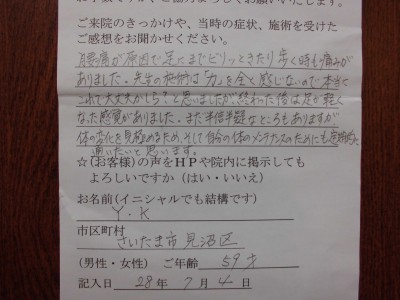 ご来院のきっかけや、当時の症状、施術を受けた
ご感想をお聞かせください。
腰痛が原因で足にまでピリッときたり歩く時も痛みが
ありました。先生の施術は「力」を全く感じないので本当に
これで大丈夫かしら?と思いましたが終わった後は足が軽く
なった感覚がありました。まだ半信半疑なところもありますが
体の変化を見極めるため、そして自分の体のメンテナンスのためにも定期的に
通いたいと思います。
☆(お客様)の声をHPや院内に掲示しても
よろしいですか(はい・いいえ)
お名前(イニシャルでも結構です)
Y.K
市区町村
さいたま市見沼区
(男性・女性) ご年齢 59才
記入日 28年 7月 4日